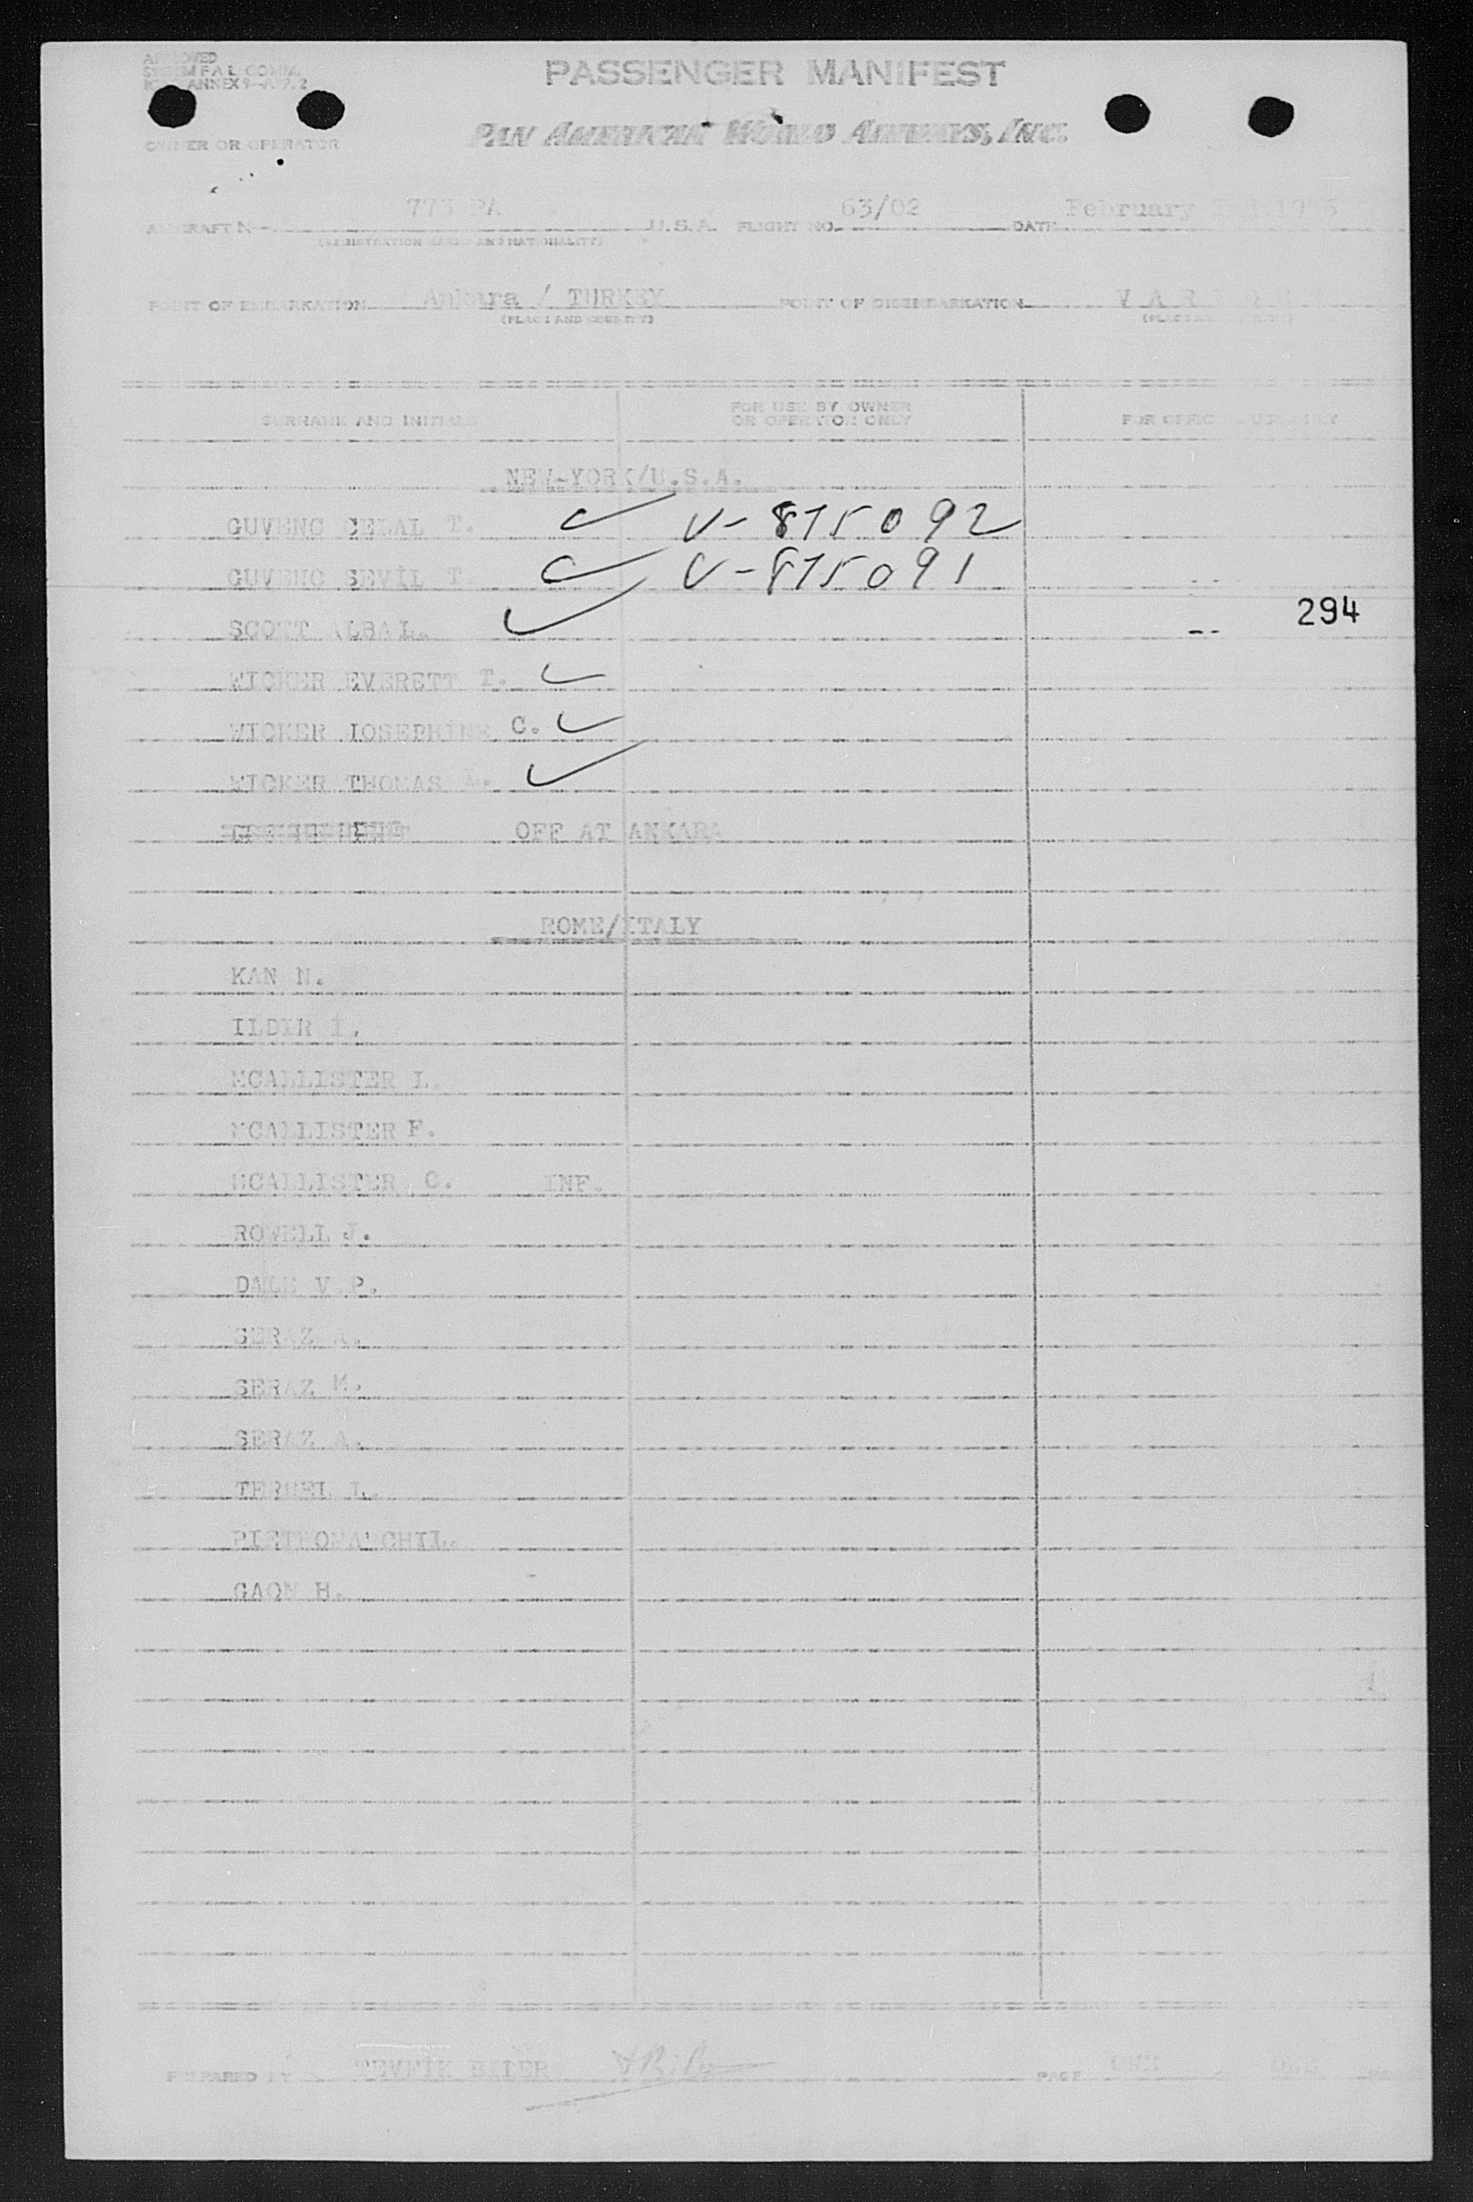 APPROVED
SYSTEM FAL COMM.
ANNEX 9
PASSENGER MANIFEST
PAN AMERICAN WORLD AIRWAYS, INC.
OWNER OR OPERATOR
AIRCRAFT N- PA U.S.A. FLIGHT NO. 63/02 DATE February
(REGISTRATION MARKS AND NATIONALITY)
POINT OF EMBARKATION Ankara / TURKEY POINT OF DISEMBARKATION
(PLACE AND COUNTRY) (PLACE AND COUNTRY)
SURNAME AND INITIALS FOR USE BY OWNER OR OPERATOR ONLY FOR OFFICIAL USE ONLY
NEW-YORK/U.S.A.
GUVENC CELAL T. V-875092
GUVENC SEVİL T. V-875091
SCOTT ALBA L. -- 294
WICKER EVERETT T.
WICKER IOSEPHINE C.
WICKER THOMAS A.
OFF AT ANKARA
ROME/ITALY
KAN N.
ILDIR İ.
MCALLISTER L.
MCALLISTER F.
MCALLISTER C. INF.
ROWELL J.
DALE V.P.
SERAZ A.
SERAZ M.
SERAZ A.
L.
GAON H.
PREPARED BY TEVFİK PAGE ONE